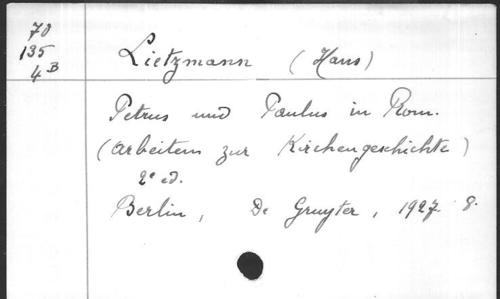 70
135
4 B
Lietzmann (Hans)
Petrus und Paulus in Rom.
(Arbeiten zur Kirchengeschichte)
2e ed.
Berlin, De Gruyter, 1927. 8.